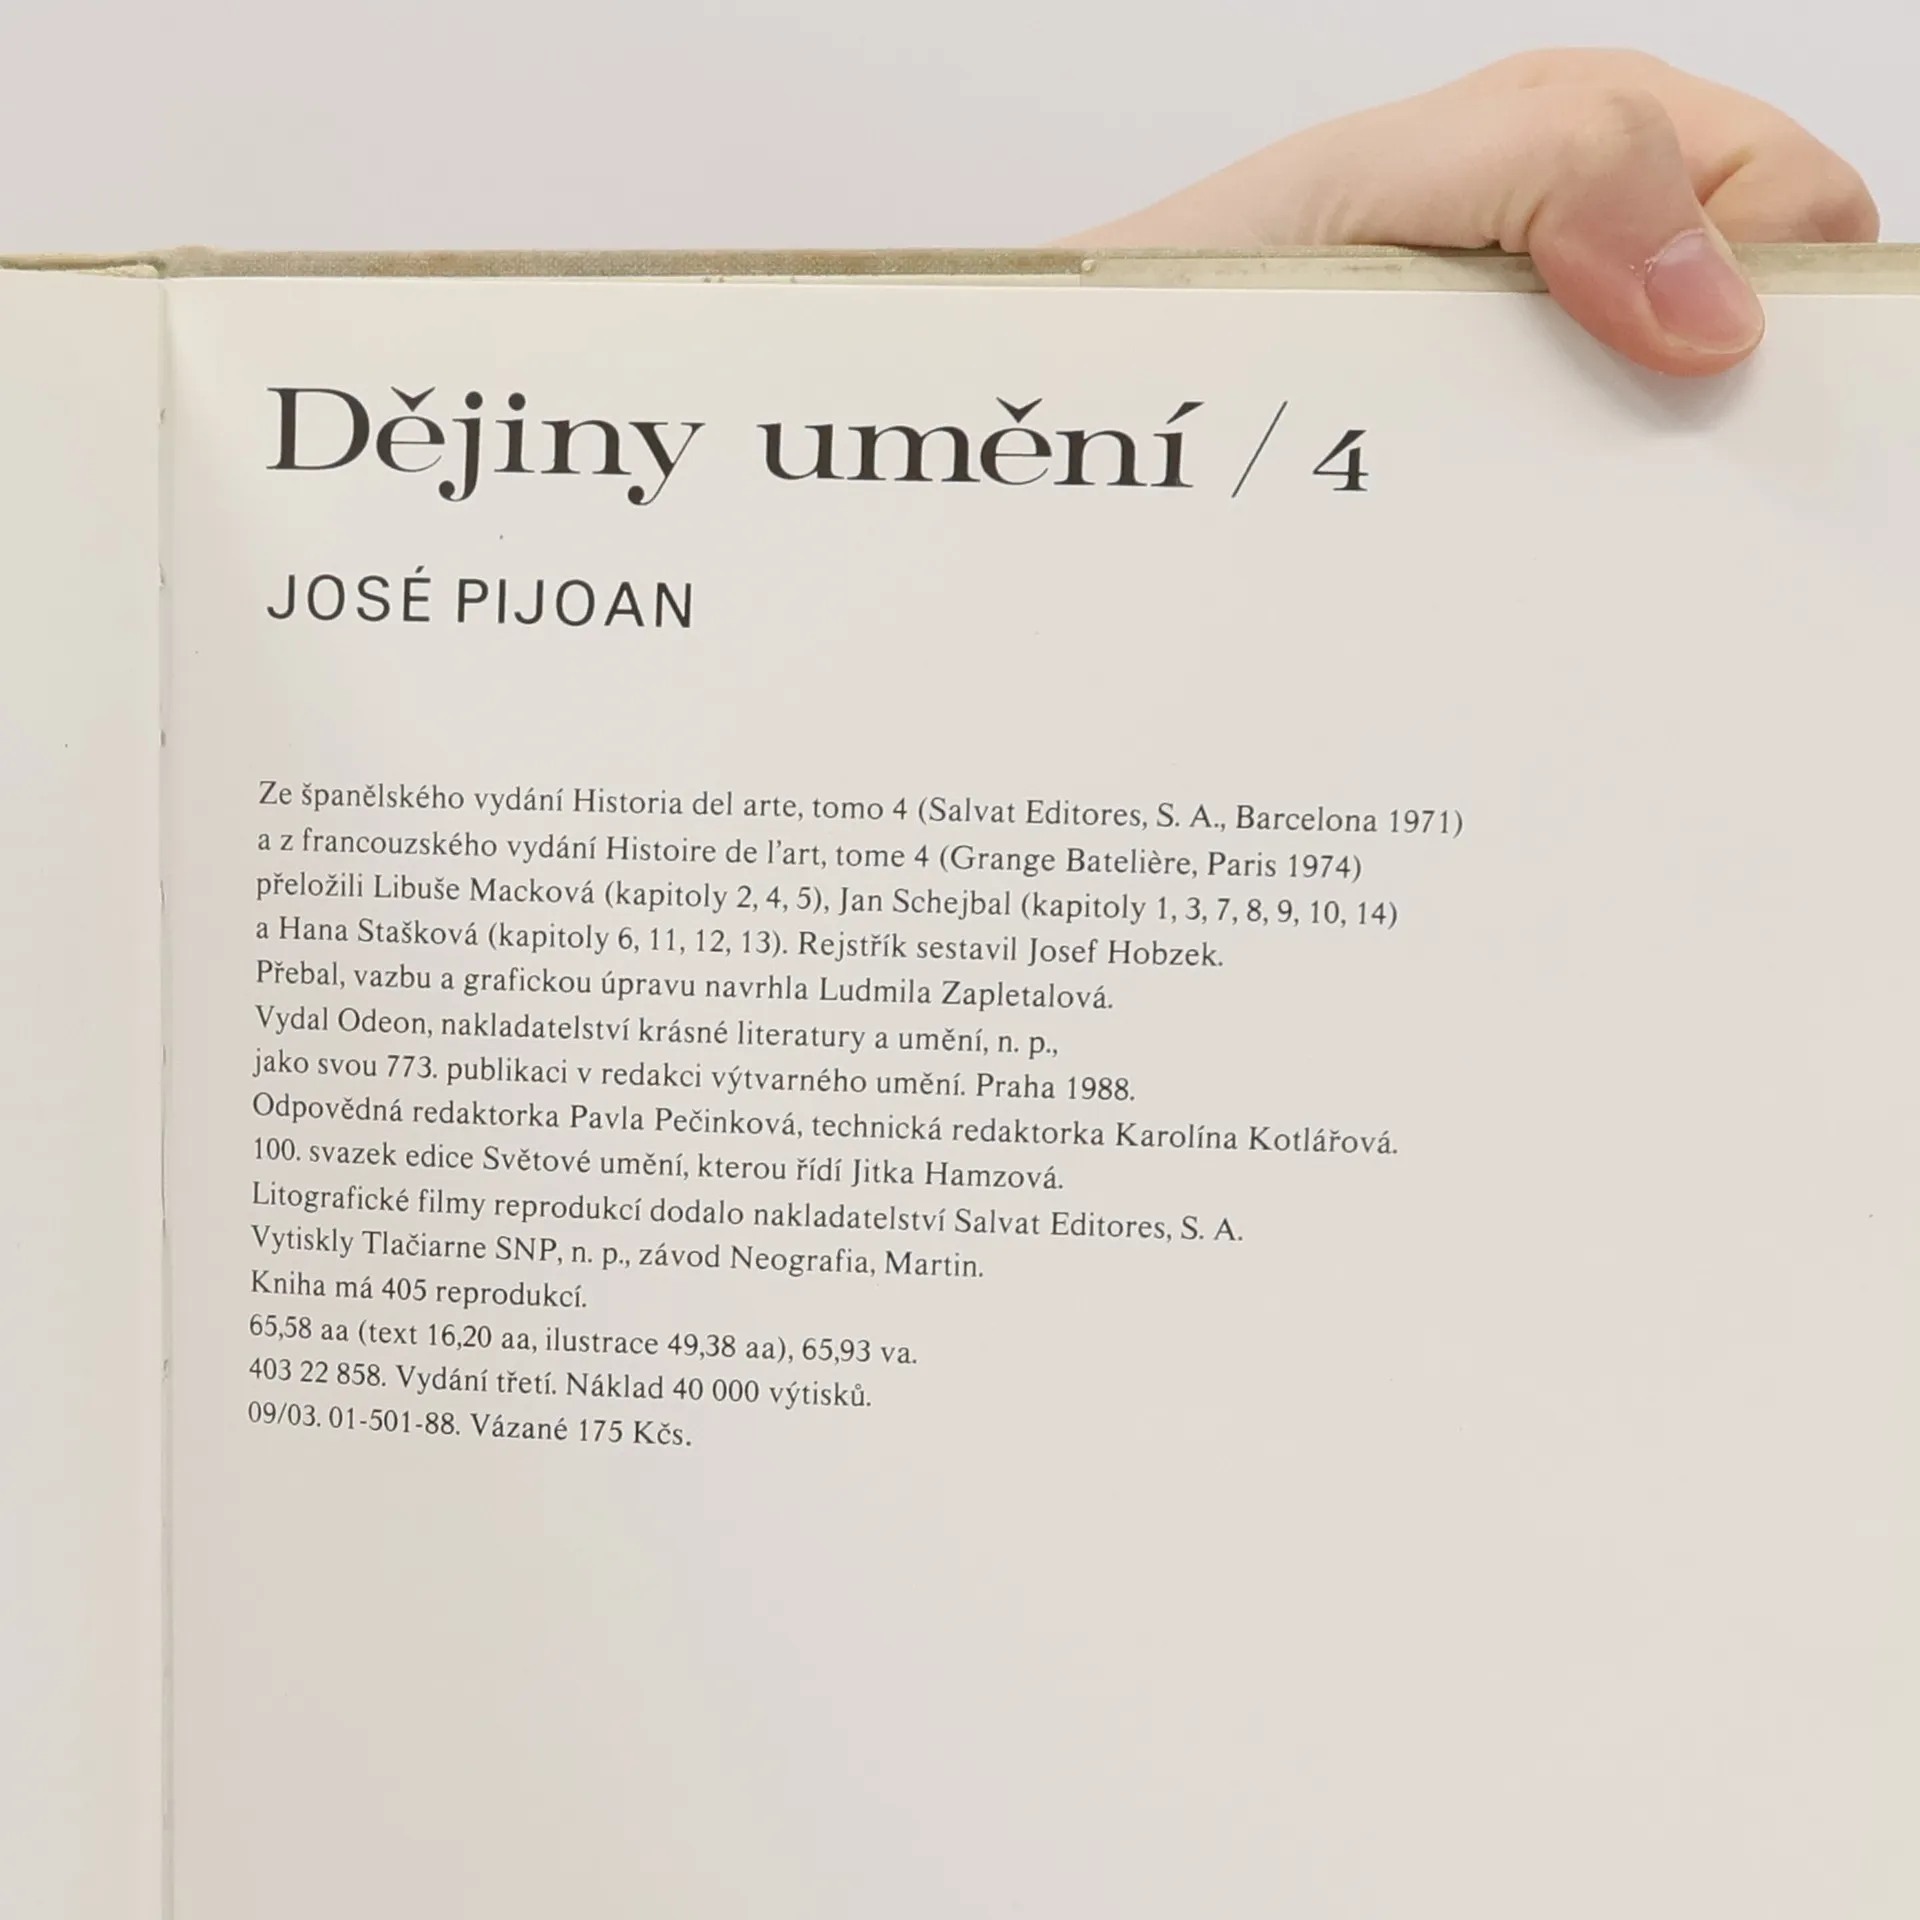 Dějiny umění / 4
JOSÉ PIJOAN
Ze španělského vydání Historia del arte, tomo 4 (Salvat Editores, S. A., Barcelona 1971)
a z francouzského vydání Histoire de l'art, tome 4 (Grange Batelière, Paris 1974)
přeložili Libuše Macková (kapitoly 2, 4, 5), Jan Schejbal (kapitoly 1, 3, 7, 8, 9, 10, 14)
a Hana Stašková (kapitoly 6, 11, 12, 13). Rejstřík sestavil Josef Hobzek.
Přebal, vazbu a grafickou úpravu navrhla Ludmila Zapletalová.
Vydal Odeon, nakladatelství krásné literatury a umění, n. p.,
jako svou 773. publikaci v redakci výtvarného umění. Praha 1988.
Odpovědná redaktorka Pavla Pečinková, technická redaktorka Karolína Kotlářová.
100. svazek edice Světové umění, kterou řídí Jitka Hamzová.
Litografické filmy reprodukcí dodalo nakladatelství Salvat Editores, S. A.
Vytiskly Tlačiarne SNP, n. p., závod Neografia, Martin.
Kniha má 405 reprodukcí.
65,58 aa (text 16,20 aa, ilustrace 49,38 aa), 65,93 va.
403 22 858. Vydání třetí. Náklad 40 000 výtisků.
09/03. 01-501-88. Vázané 175 Kčs.